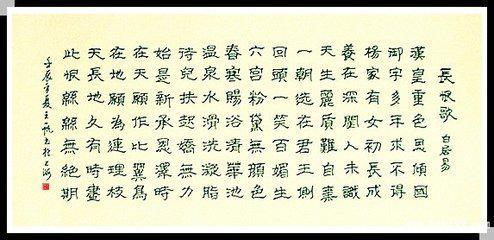 長恨歌 白居易
漢皇重色思傾國
御宇多年求不得
楊家有女初長成
養在深閨人未識
天生麗質難自棄
一朝選在君王側
回頭一笑百媚生
六宮粉黛無顏色
春寒賜浴清華池
溫泉水滑洗凝脂
侍兒扶起嬌無力
始是新承恩澤時
在天願作比翼鳥
在地願為連理枝
天長地久有時盡
此恨緜緜無絕期
壬辰年夏王於上海